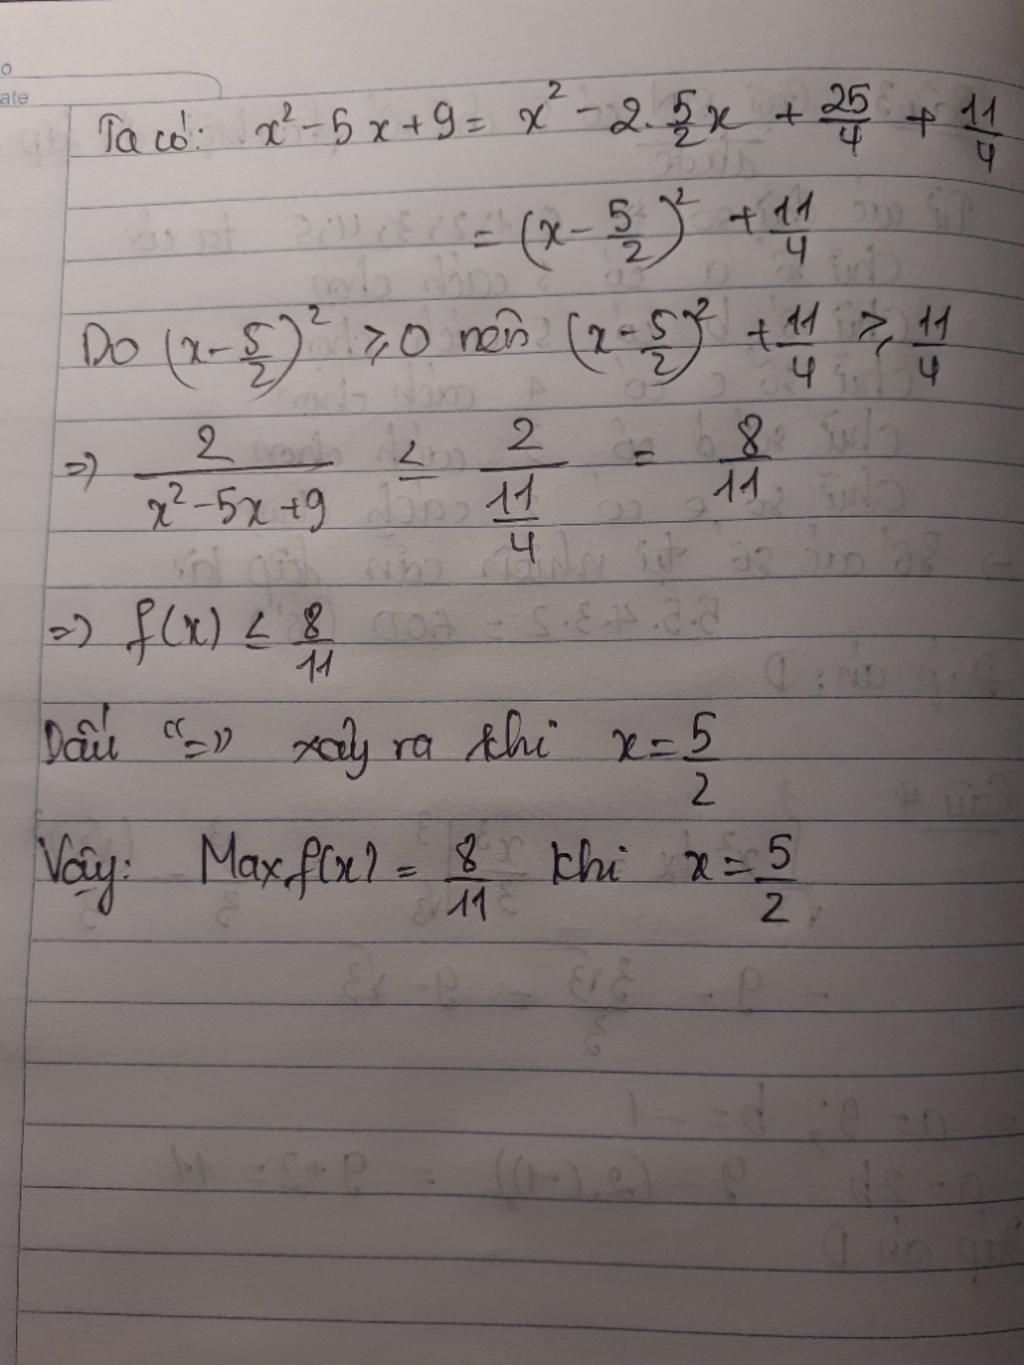 o
ate
Ta có: x² - 5x + 9 = x² - 2. 5/2 x + 25/4 + 11/4
= (x - 5/2)² + 11/4
Do (x - 5/2)² ≥ 0 nên (x - 5/2)² + 11/4 ≥ 11/4
=> 2/(x² - 5x + 9) ≤ 2/(11/4) = 8/11
=> f(x) ≤ 8/11
Dấu "=" xảy ra khi x = 5/2
Vậy: Max f(x) = 8/11 khi x = 5/2